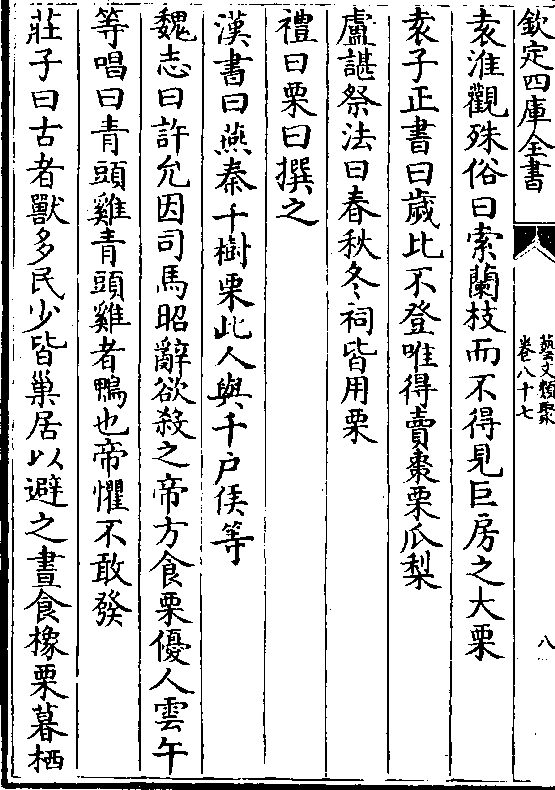 欽定四庫全書
藝文類聚
卷八十七
八
袁淮觀殊俗曰索蘭枝而不得見巨房之大栗
袁子正書曰歲比不登唯得賣棗栗瓜梨
盧諶祭法曰春秋冬祠皆用栗
禮曰栗曰撰之
漢書曰燕秦千樹栗此人與千户侯等
魏志曰許允因司馬昭辭欲殺之帝方食栗優人雲午
等唱曰青頭雞青頭雞者鴨也帝懼不敢發
莊子曰古者獸多民少皆巢居以避之晝食橡栗暮栖